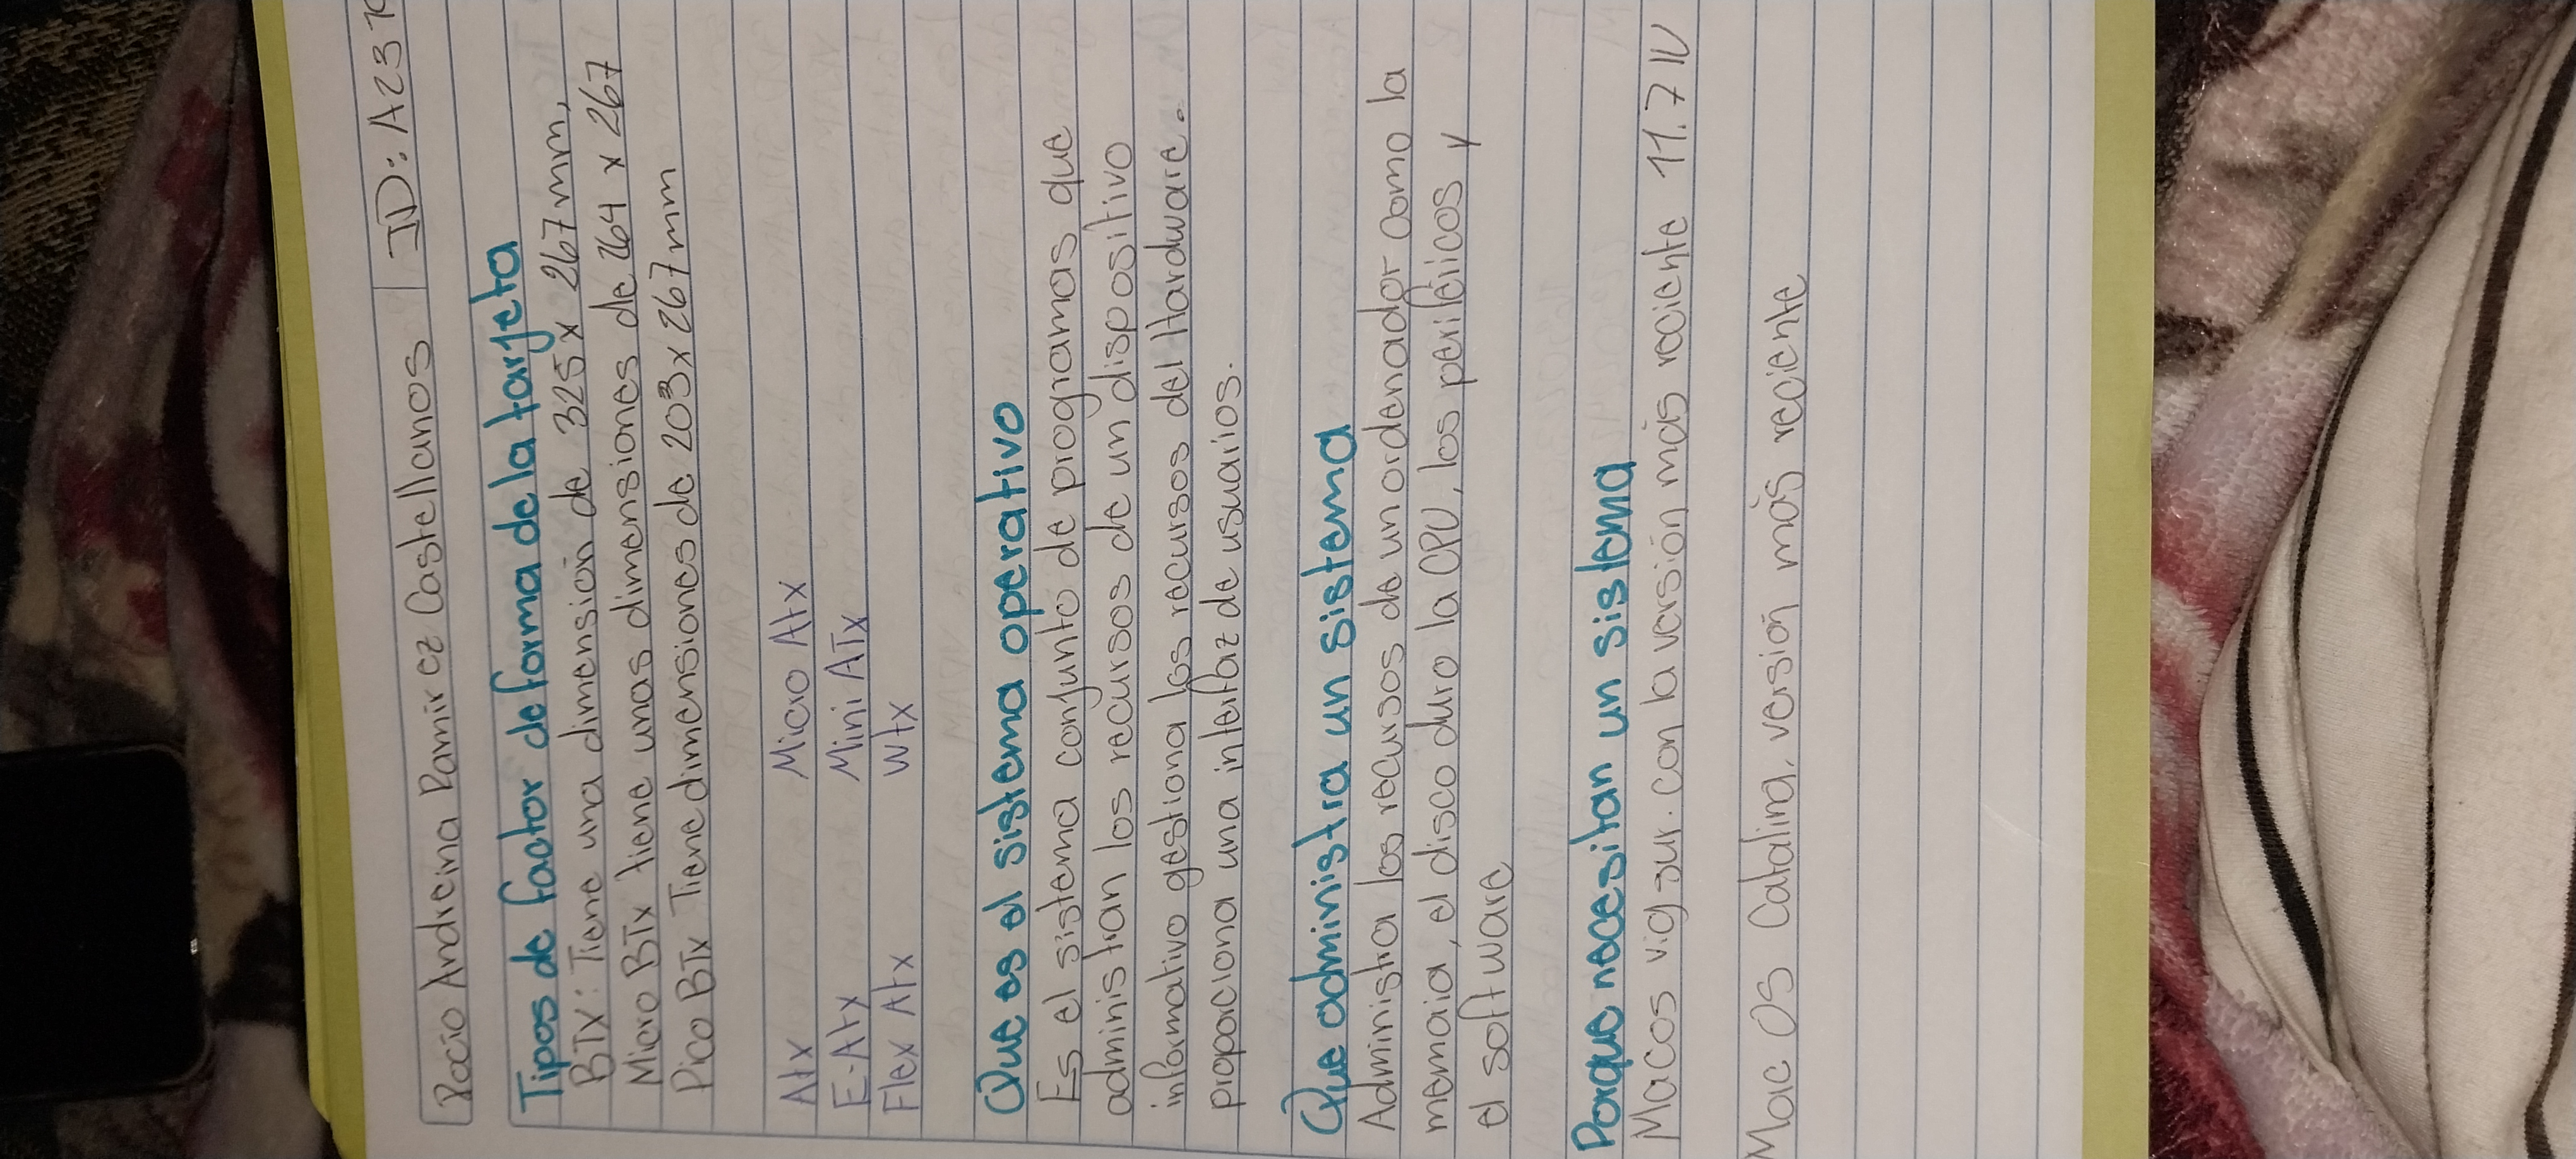 Rocío Andreina Ramirez Castellanos ID: A237
Tipos de factor de forma de la tarjeta
BTX: Tiene una dimensión de 325 x 267 mm,
Micro BTx tiene unas dimensiones de 264 x 267
Pico BTx Tiene dimensiones de 203 x 267 mm
Atx Micro Atx
E-Atx Mini ATx
Flex Atx Wtx
Que es el sistema operativo
Es el sistema conjunto de programas que
administran los recursos de un dispositivo
informativo gestiona los recursos del Hardware.
proporciona una interfaz de usuarios.
Que administra un sistema
Administra los recursos de un ordenador como la
memoria, el disco duro la CPU, los periféricos y
el software
Porque necesitan un sistema
Macos vig sur. con la versión más reciente 11.7
Mac OS Catalina, versión más reciente